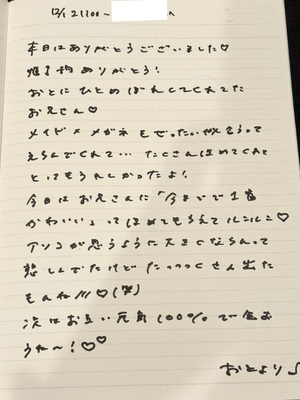 12/1 21:00〜 へ
本日はありがとうございました♡
指名予約ありがとう!
おとにひとめぼれしてくれてた
お兄さん♡
メイドとメガネもぜったい似合うって
えらんでくれて… たくさんほめてくれて
とってもうれしかったよ!
今日はお兄さんに「今までで1番
かわいい」ってほめてもらえてルンルン♡
アソコが思うように大きくならんって
悲しんでたけどたっっっくさん出た
もんね///♡(笑)
次はお互い元気100%で会お
うね〜!♡♡
おとより